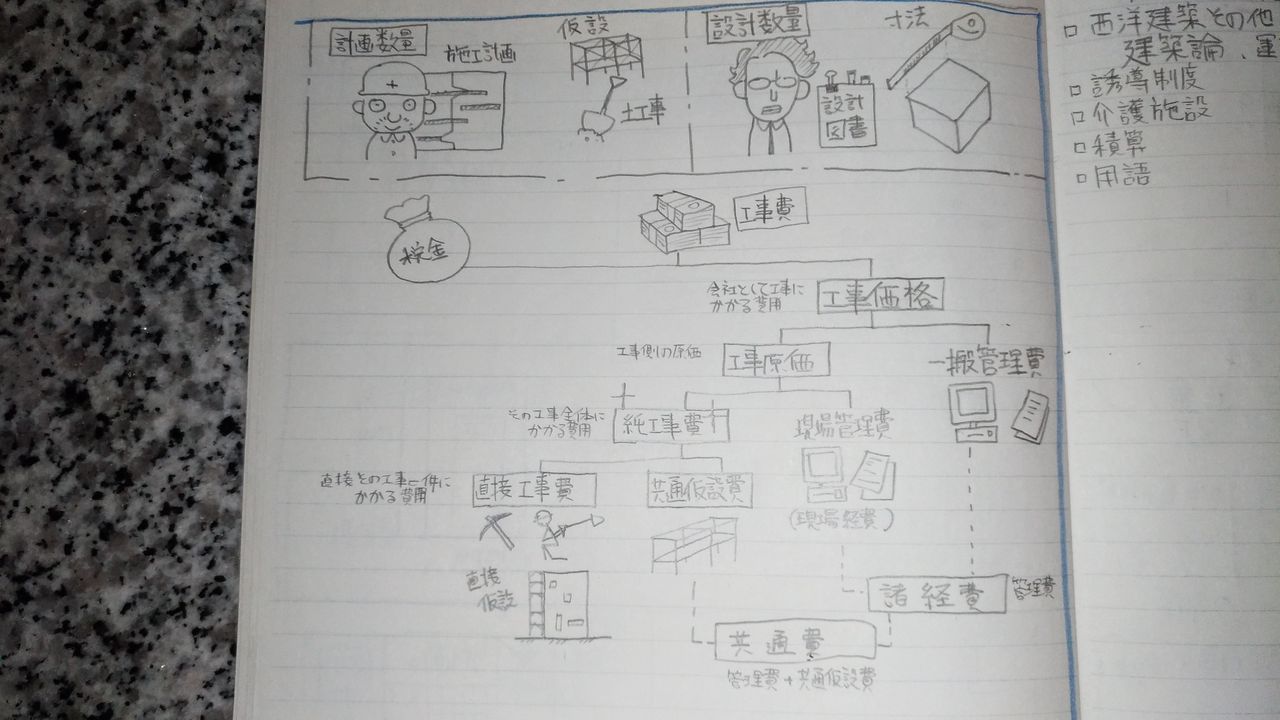 計画数量
施工計画
仮設
土工事
設計数量
寸法
設計
図書
税金
工事費
会社として工事に
かかる費用
工事価格
工事側の原価
工事原価
一搬管理費
その工事全体に
かかる費用
純工事費
現場管理費
直接その工事一件に
かかる費用
直接工事費
共通仮設費
(現場経費)
直接
仮設
諸経費
管理費
共通費
管理費+共通仮設費
西洋建築その他
建築論、
誘導制度
介護施設
積算
用語